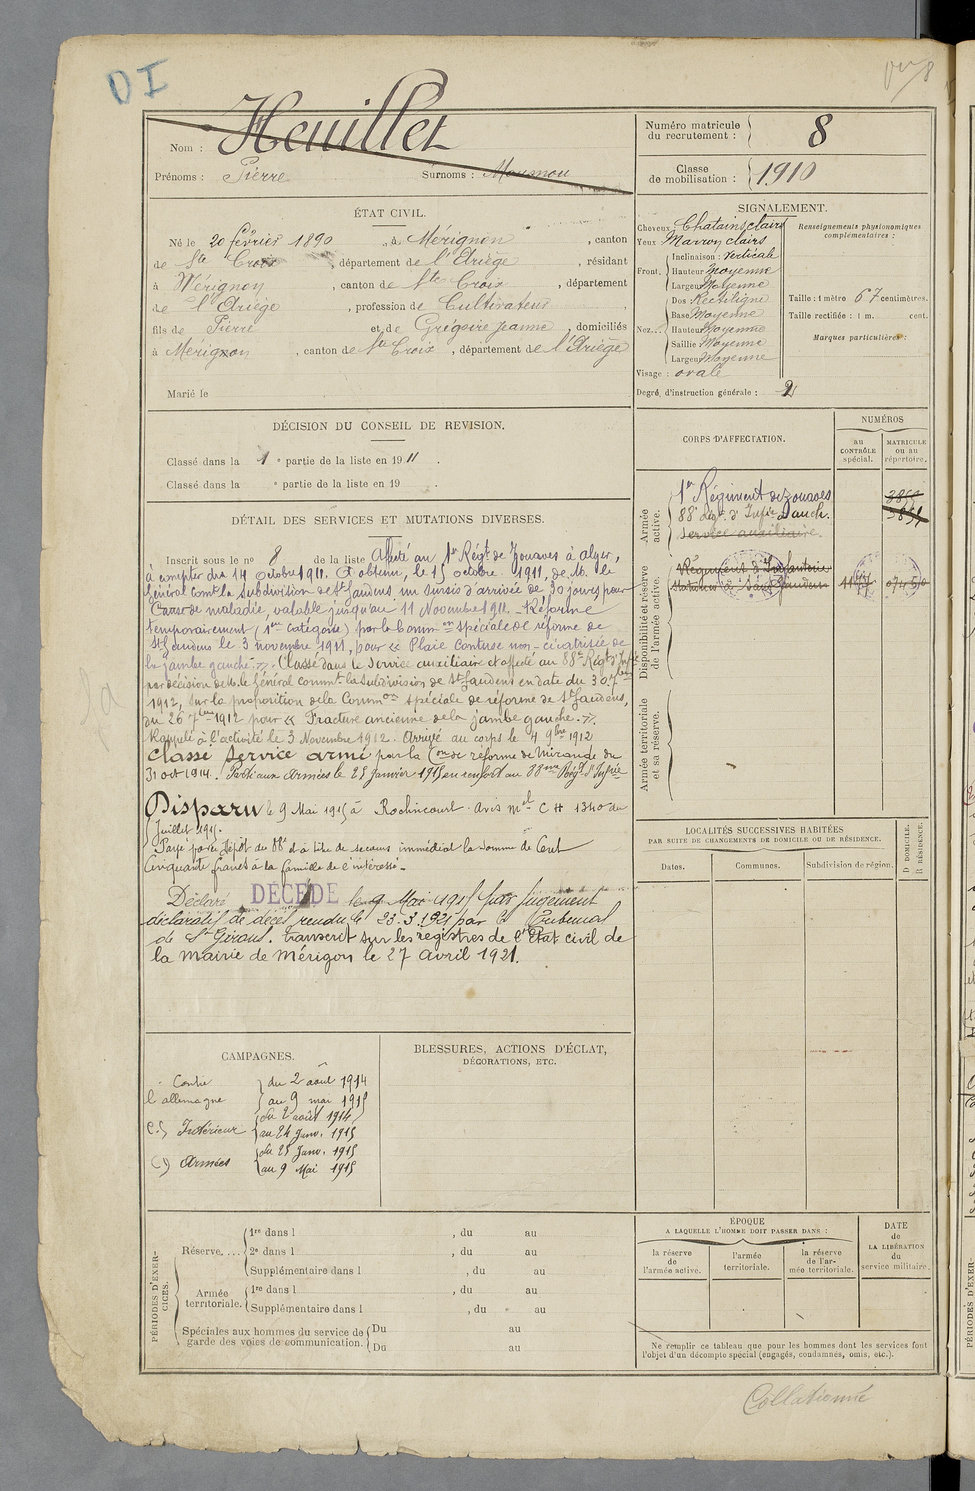 DI
Nom : Heuillet
Prénoms : Pierre Surnoms : Moumou
Numéro matricule
du recrutement : 8
Classe
de mobilisation : 1910
ÉTAT CIVIL.
Né le 20 février 1890, à Mérignon, canton
de Ste Croix, département de l'Ariège, résidant
à Mérignon, canton de Ste Croix, département
de l'Ariège, profession de Cultivateur,
fils de Pierre et de Grégoire Jeanne, domiciliés
à Mérignon, canton de Ste Croix, département de l'Ariège
Marié le
SIGNALEMENT.
Cheveux Chatains clairs
Yeux Marron clairs
Front. Inclinaison : Verticale
Hauteur Moyenne
Largeur Moyenne
Nez. Dos Rectiligne
Base Moyenne
Hauteur Moyenne
Saillie Moyenne
Largeur Moyenne
Visage : ovale
Degré d'instruction générale : 2
Renseignements physionomiques
complémentaires :
Taille : 1 mètre 67 centimètres.
Taille rectifiée : 1 m. cent.
Marques particulières :
DÉCISION DU CONSEIL DE REVISION.
Classé dans la 1e partie de la liste en 1911.
Classé dans la e partie de la liste en 19 .
DÉTAIL DES SERVICES ET MUTATIONS DIVERSES.
Inscrit sous le no 8 de la liste Affecté au 1er Régt de Zouaves à Alger,
à compter du 14 octobre 1911. A obtenu, le 15 octobre 1911, de M. le
Général Comt la Subdivision de St Gaudens, un sursis d'arrivée de 30 jours pour
Cause de maladie, valable jusqu'au 11 Novembre 1911. Réformé
temporairement (1ère Catégorie) par la Comm on spéciale de réforme de
St Gaudens le 3 novembre 1911, pour « Plaie Contuse non-cicatrisée de
la jambe gauche ». Classé dans le Service auxiliaire et affecté au 88e Régt d'Infie
par décision de M. le Général Commt la Subdivision de St Gaudens en date du 30 7bre
1912, sur la proposition de la Comm on spéciale de réforme de St Gaudens,
du 26 7bre 1912 pour « Fracture ancienne de la jambe gauche ».
Rappelé à l'activité le 3 Novembre 1912. Arrivé au corps le 4 9bre 1912
Classé Service armé par la Con de réforme de Mirande du
31 oct 1914. Parti aux armées le 25 Janvier 1915 en renfort au 88ème Régt d'Infie
Disparu le 9 Mai 1915 à Roclincourt. Avis Mel C H 1340 du
Juillet 1915.
Payé par le Dépôt du 88e à titre de secours immédiat la somme de Cent
Cinquante francs à la famille de l'intéressé.
Déclaré DÉCÉDÉ le 9 Mai 1915 par jugement
déclaratif de décès rendu le 23.3.1921 par le Tribunal
de St Girons. Transcrit sur les registres de l'État civil de
la mairie de Mérigon le 27 avril 1921.
CORPS D'AFFECTATION.
NUMÉROS
au
CONTRÔLE
spécial.
MATRICULE
ou au
répertoire.
Armée
active.
1er Régiment de Zouaves
88e Régt d'Infie à Auch.
Service auxiliaire.
Disponibilité et réserve
de l'armée active.
Régiment d'Infanterie
Armée territoriale
et sa réserve.
LOCALITÉS SUCCESSIVES HABITÉES
PAR SUITE DE CHANGEMENTS DE DOMICILE OU DE RÉSIDENCE.
Dates.
Communes.
Subdivision de région.
D DOMICILE.
R RÉSIDENCE.
CAMPAGNES.
Contre du 2 août 1914
l'allemagne au 9 mai 1915
C.S Intérieur du 2 août 1914
au 24 Janv. 1915
C) Armées du 25 Janv. 1915
au 9 Mai 1915
BLESSURES, ACTIONS D'ÉCLAT,
DÉCORATIONS, ETC.
PÉRIODES D'EXER-
CICES.
Réserve.... 1re dans l , du au
2e dans l , du au
Supplémentaire dans l , du au
Armée
territoriale. 1re dans l , du au
Supplémentaire dans l , du au
Spéciales aux hommes du service de
garde des voies de communication. Du au
Du au
ÉPOQUE
A LAQUELLE L'HOMME DOIT PASSER DANS :
la réserve
de
l'armée active.
l'armée
territoriale.
la réserve
de l'ar-
mée territoriale.
DATE
de
LA LIBÉRATION
du
service militaire.
Ne remplir ce tableau que pour les hommes dont les services font
l'objet d'un décompte spécial (engagés, condamnés, omis, etc.).
Collationné